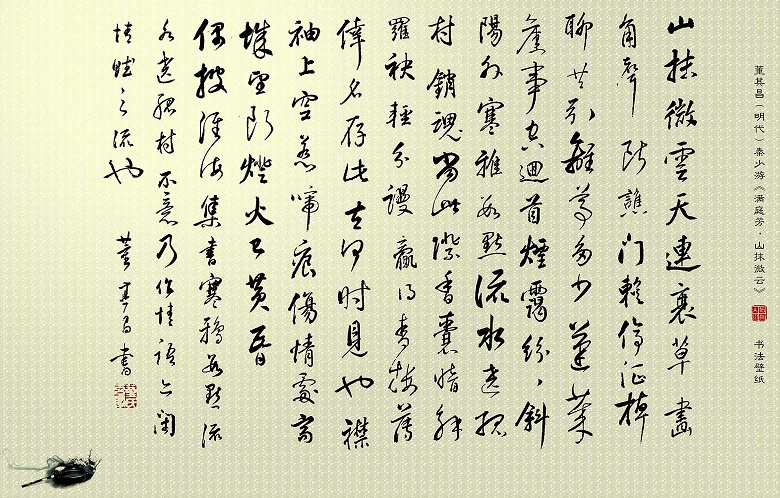 董其昌（明代）秦少游《满庭芳·山抹微云》 书法壁纸
山抹微雲天連衰草畫
角聲断譙門暫停征棹
聊共引離尊多少蓬萊
舊事空迴首煙靄紛〻斜
陽外寒鴉數點流水遶孤
村銷魂當此際香囊暗解
羅袂輕分謾贏得青樓薄
倖名存此去何時見也襟
袖上空惹啼痕傷情處高
城望断燈火已黃昏
偶披淮海集書寒鴉數點流
水遶孤村不意乃作情語亦閑
情賦之流也 董其昌書